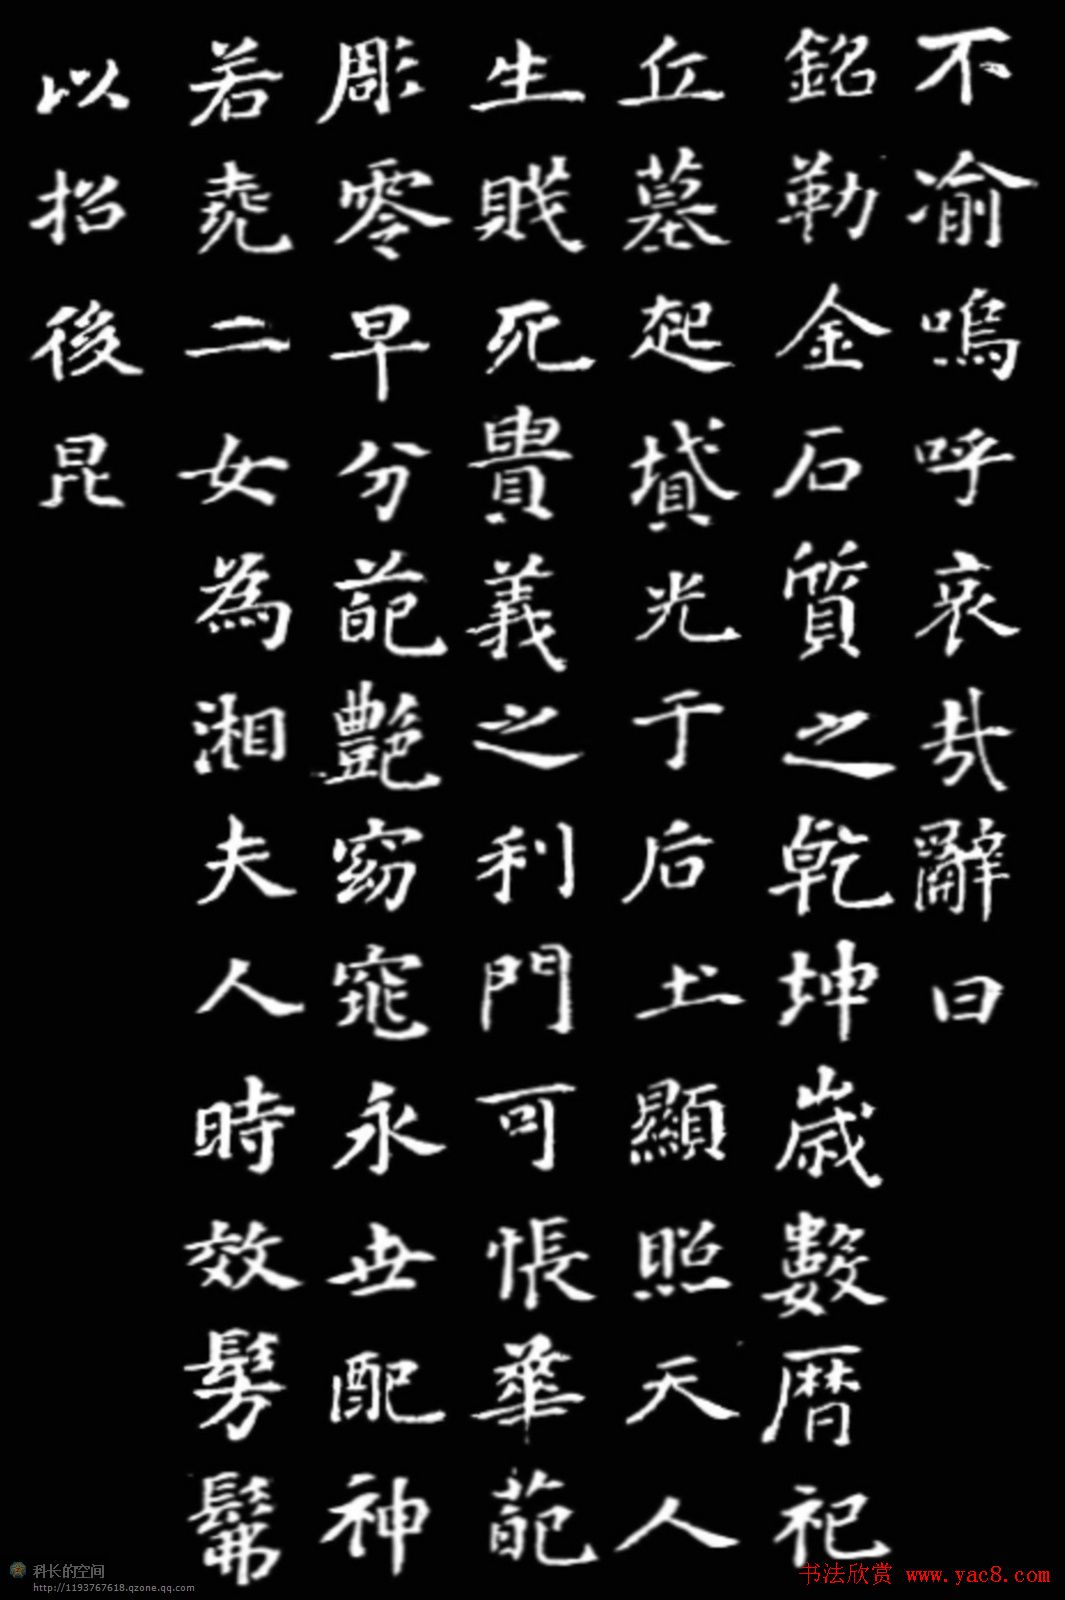 不渝嗚呼哀哉辭曰
銘勒金石質之乾坤歲數曆祀
丘墓起墳光于后土顯照天人
生賤死貴義之利門何悵華葩
彫零早分葩艷窈窕永世配神
若堯二女為湘夫人時效髣髴
以招後昆
科长的空间
http://1193767618.qzone.qq.com
书法欣赏 www.yac8.com